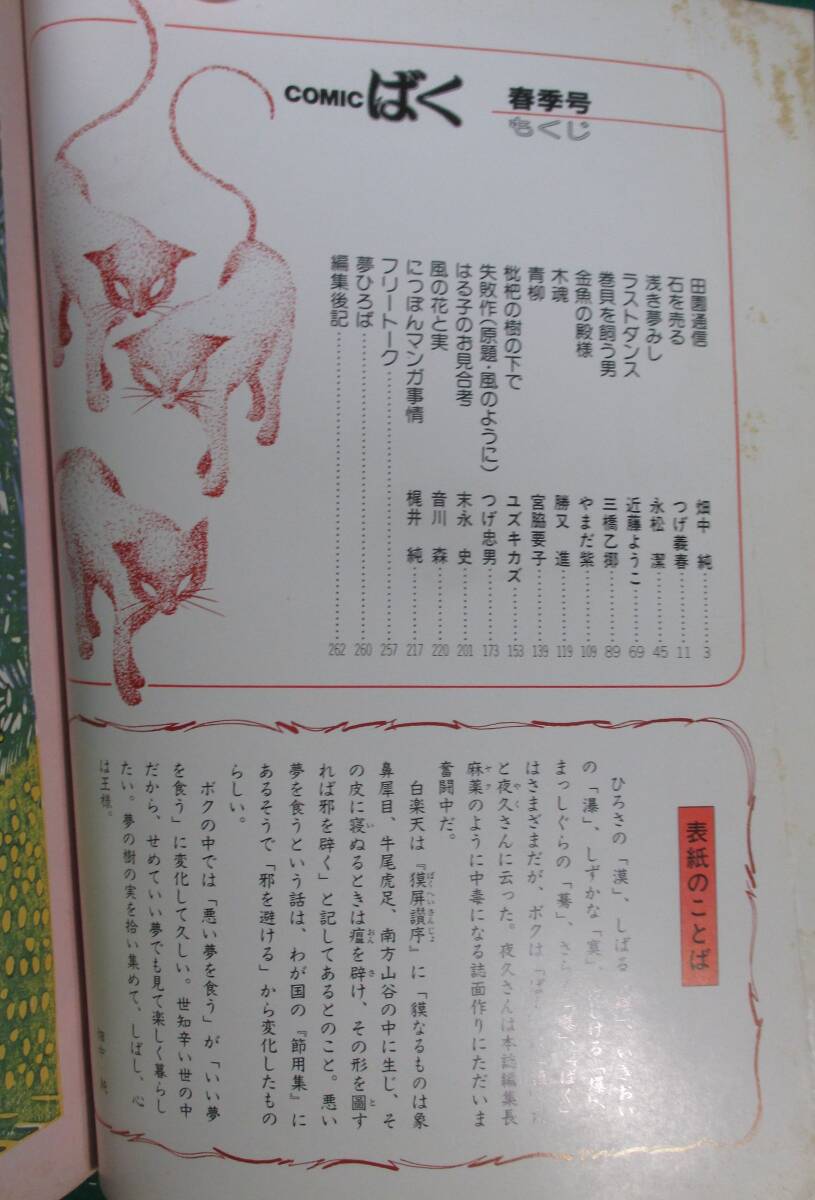 COMIC ばく 春季号
もくじ
田園通信 畑中 純 3
石を売る つげ義春 11
浅き夢みし 永松 潔 45
ラストダンス 近藤ようこ 69
巻貝を飼う男 三橋乙揶 89
金魚の殿様 やまだ紫 109
木魂 勝又 進 119
青柳 宮脇要子 139
枇杷の樹の下で ユズキカズ 153
失敗作(原題・風のように) つげ忠男 173
はる子のお見合考 末永 史 201
風の花と実 音川 森 220
にっぽんマンガ事情 梶井 純 217
フリートーク 257
夢ひろば 260
編集後記 262
表紙のことば
ひろさの「漠」、しばる
の「瀑」、しずかな「寞」
まっしぐらの「驀」、さら
はさまざまだが、ボクは
と夜久さんに云った。夜久さんは本誌編集長
麻薬のように中毒になる誌面作りにただいま
奮闘中だ。
白楽天は『獏屏讃序』に「貘なるものは象
鼻犀目、牛尾虎足、南方山谷の中に生じ、そ
の皮に寝ぬるときは瘟を辟け、その形を圖す
れば邪を辟く」と記してあるとのこと。悪い
夢を食うという話は、わが国の『節用集』に
あるそうで「邪を避ける」から変化したもの
らしい。
ボクの中では「悪い夢を食う」が「いい夢
を食う」に変化して久しい。世知辛い世の中
だから、せめていい夢でも見て楽しく暮らし
たい。夢の樹の実を拾い集めて、しばし、心
は王様。
畑中 純